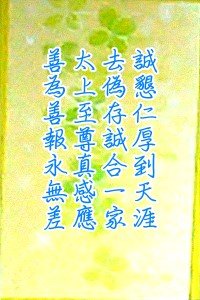 誠懇仁厚到天涯
去偽存誠合一家
太上至尊真感應
善為善報永無差